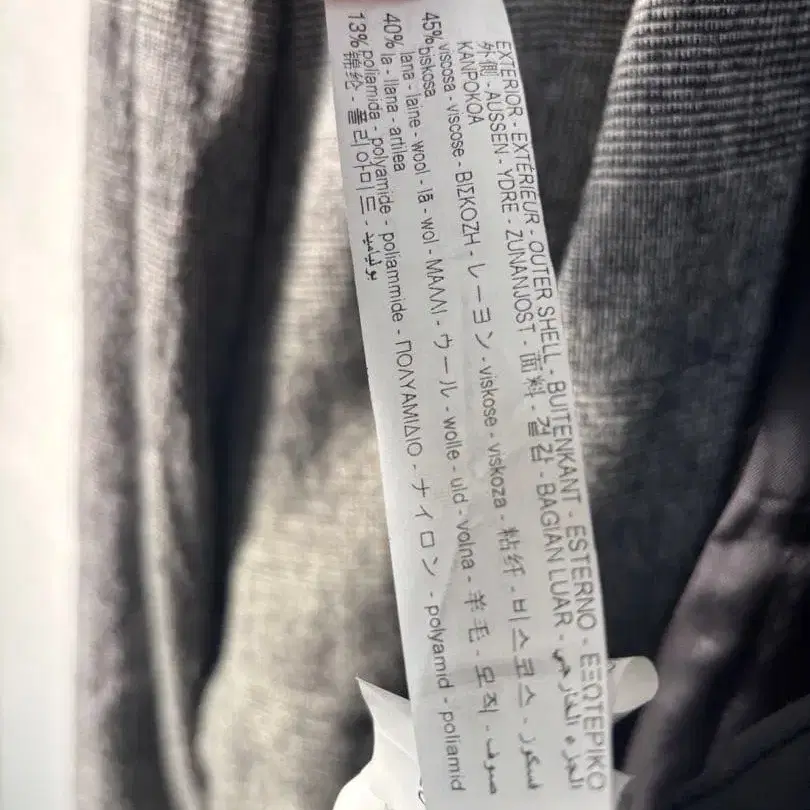 EXTERIOR - EXTÉRIEUR - OUTER SHELL - BUITENKANT - ESTERNO - ΕΞΩΤΕΡΙΚΟ
外側 - AUSSEN - YDRE - ZUNANJOST - 面料 - 겉감 - BAGIAN LUAR - الجزء الخارجي
KANPOKOA
45% viscosa - viscose - ΒΙΣΚΟΖΗ - レーヨン - viskose - viskoza - 粘纤 - 비스코스 - فسكوز
biskosa
40% lana - laine - wool - lã - wol - ΜΑΛΛΙ - ウール - wolle - uld - volna - 羊毛 - 모직 - صوف
la - llana - artilea
13% poliamida - polyamide - poliammide - ΠΟΛΥΑΜΙΔΙΟ - ナイロン - polyamid - poliamid
锦纶 - 폴리아미드 - بولياميد